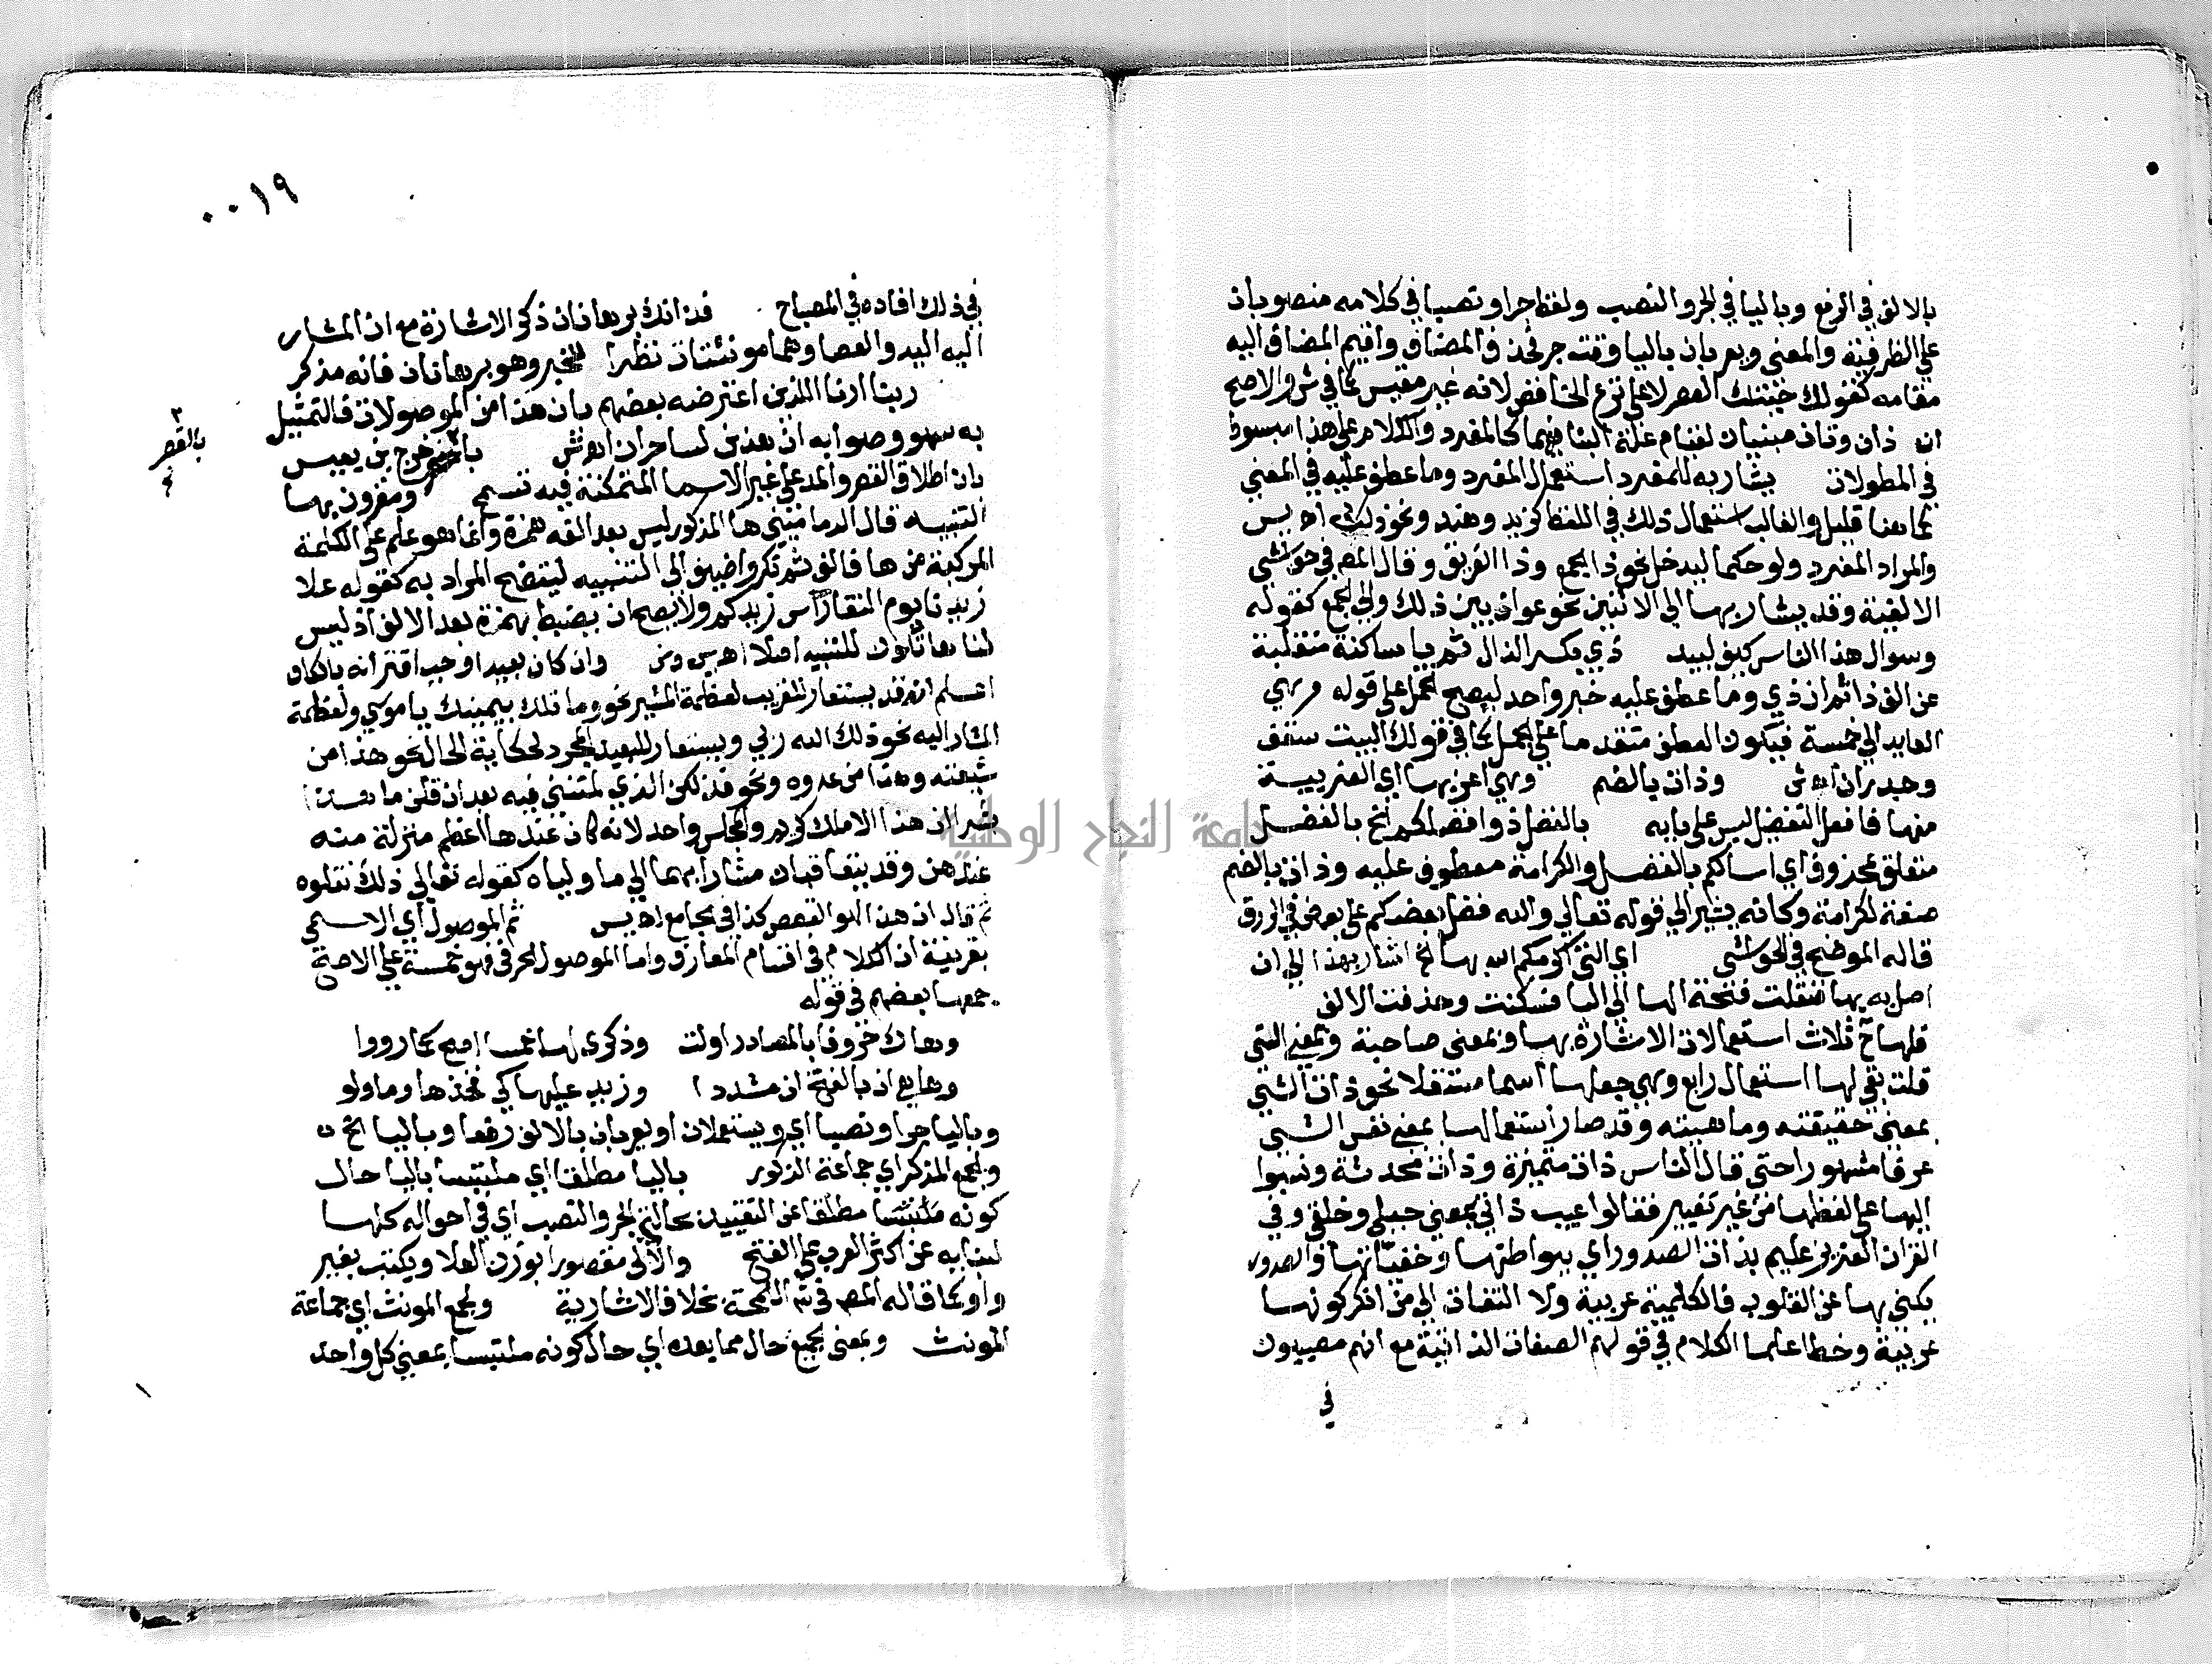 بالالف في الرفع وباليا في الجر والنصب ولفظ جرا ونصبا في كلامه منصوبان
علي الظرفية والمعني ويعربان باليا وقت جر فحذف المضاف واقيم المضاف اليه
مقامه كقولك جئتك العصر لا علي نزع الخافض لانه غير مقيس كما في ش والاصح
ان ذان وتان مبنيان لقيام علة البنا فيهما كالمفرد والكلام علي هذا مبسوط
في المطولات يشار به للمفرد استعمال المفرد وما عطف عليه في المعني
كما هنا قليل والغالب استعمال ذلك في اللفظ كزيد وهند ونحو ذلك اه يس
والمراد المفرد ولو حكما ليدخل نحو ذا الجمع وذا الفريق وقال المص في حواشي
الالفية وقد يشار بها الي الاثنين نحو عوان بين ذلك والي الجمع كقوله
وسوال هذا الناس كيف لبيد ذي بكسر الذال ثم يا ساكنة منقلبة
عن الف ذا ثم ان ذي وما عطف عليه خبر واحد ليصح الحمل علي قوله وهي
العايد الي خمسة فيكون العطف متقدما علي الحمل كما في قولك البيت سقف
وجدران اه ش وذات بالضم وهي اغربها اي الغريبة
منها فافعل التفضيل ليس علي بابه بالفضل ذو افضلكم الخ بالفضل
متعلق بمحذوف اي اسالكم بالفضل والكرامة معطوف عليه وذات بالضم
صفة لكرامة وكانه يشير الي قوله تعالي والله فضل بعضكم علي بعض في الرزق
قاله الموضح في الحواشي اي التي اكرمكم الله بها الخ اشار بهذا الي ان
اصل به بها فنقلت فتحة الها الي البا فسكنت وحذفت الالف
فلها ح ثلاث استعمالات الاشارة بها وبمعني صاحبة وبمعني التي
قلت بقي لها استعمال رابع وهي جعلها اسما مستقلا نحو ذات الشي
بمعني حقيقته وماهيته وقد صار استعمالها بمعني نفس الشي
عرفا مشهورا حتي قال الناس ذات متميزة وذات محدثة ونسبوا
اليها علي لفظها من غير تغيير فقالوا عيب ذاتي بمعني جبلي وخلقي وفي
القران العزيز عليم بذات الصدور اي ببواطنها وخفياتها والصدور
يكني بها عن القلوب فالكلمية عربية ولا التفات الي من انكر كونها
عربية وخطا علما الكلام في قولهم الصفات الذاتية مع انهم مصيبون
في
٠٠١٩
في ذلك افاده في المصباح فذانك برهانان ذكر الاشارة مع ان المشار
اليه اليد والعصا وهما مونثتان نظرا للخبر وهو برهانان فانه مذكر
ربنا ارنا اللذين اعترضه بعضهم بان هذا من الموصولات فالتمثيل
به سهو وصوابه ان هذين لساحران اه ش خرج بن يعيس
بالقصر
بان اطلاق القصر والمد علي غير الاسما المتمكنة فيه تسمح ومقرون بها
التنبيه قال الدماميني ها المذكور ليس بعد الفه همزة وانما هو علم علي الكلمة
المركبة من ها فالف ثم نكر واضيف الي التنبيه ليتضح المراد به كقوله علا
زيدنا يوم النقا راس زيدكم ولا يصح ان يضبط بهمزة بعد الالف اذ ليس
لنا هاء تكون للتنبيه اصلا اه يس وش وان كان بعيدا وجب اقترانه بالكاف
اعلم انه قد يستعار للقريب لعظمة المشير نحو وما تلك بيمينك يا موسي ولعظمة
المشار اليه نحو ذلك الله ربي ويستعار للبعيد المجرد لحكاية الحال نحو هذا من
شيعته وهذا من عدوه ونحو فذلكن الذي لمتنني فيه بعد ان قلن ما هذا
بشرا ان هذا الا ملك كريم والمجلس واحد لانه كان عندها اعظم منزلة منه
عندهن وقد يتعاقبان مشارا بهما الي ما ولياه كقوله تعالي ذلك نتلوه
ثم قال ان هذا لهو القصص كذا في الجامع اه يس ثم الموصول اي الاسمي
بقرينة ان الكلام في اقسام المعارف واما الموصول الحرفي فهو خمسة علي الاصح
جمعها بعضهم في قوله
وهاك حروفا بالمصادر اولت وذكري لها خمسا اصح كما رووا
وها هي ان بالفتح ان مشددا وزيد عليها كي فخذها وما ولو
وباليا جرا ونصبا اي ويستعملان او يعربان بالالف رفعا وباليا الخ
ولجمع المذكر اي جماعة الذكور باليا مطلقا اي ملتبسا باليا حال
كونه ملتبسا مطلقا عن التقييد بحالتي الجر والنصب اي في احواله كلها
لبنايه عن اكثر العرب علي الفتح والالي مقصورا بوزن العلا ويكتب بغير
واو كما قاله المص في ش اللمحة بخلاف الاشارية ولجمع المونث اي جماعة
المونث وبمعني الجميع حال مما بعده اي حال كونه ملتبسا بمعني كل واحد
جامعة النجاح الوطنية